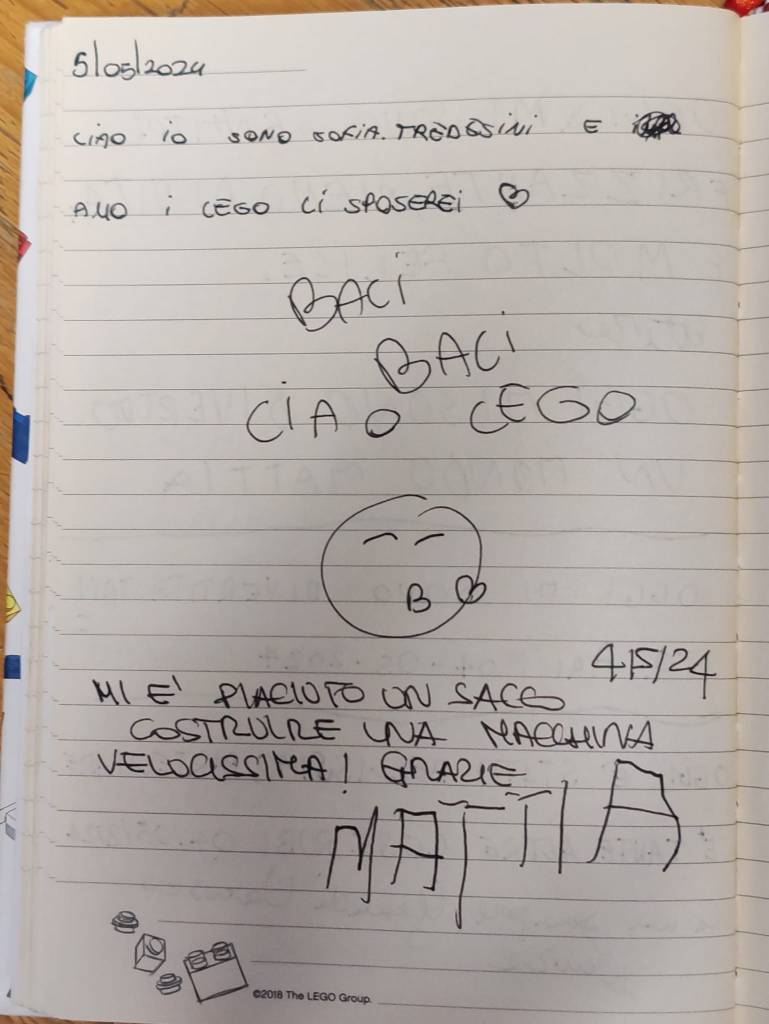 5/05/2024
CIAO iO SONO SOFIA. TREDESiNi E
AMO i LEGO Li SPOSEREi
BACi
BACi
CiAO LEGO
B
4/5/24
MI E' PIACIUTO UN SACCO
COSTRUIRE UNA MACCHINA
VELOCISSIMA! GRAZIE
MATTIA
©2018 The LEGO Group.